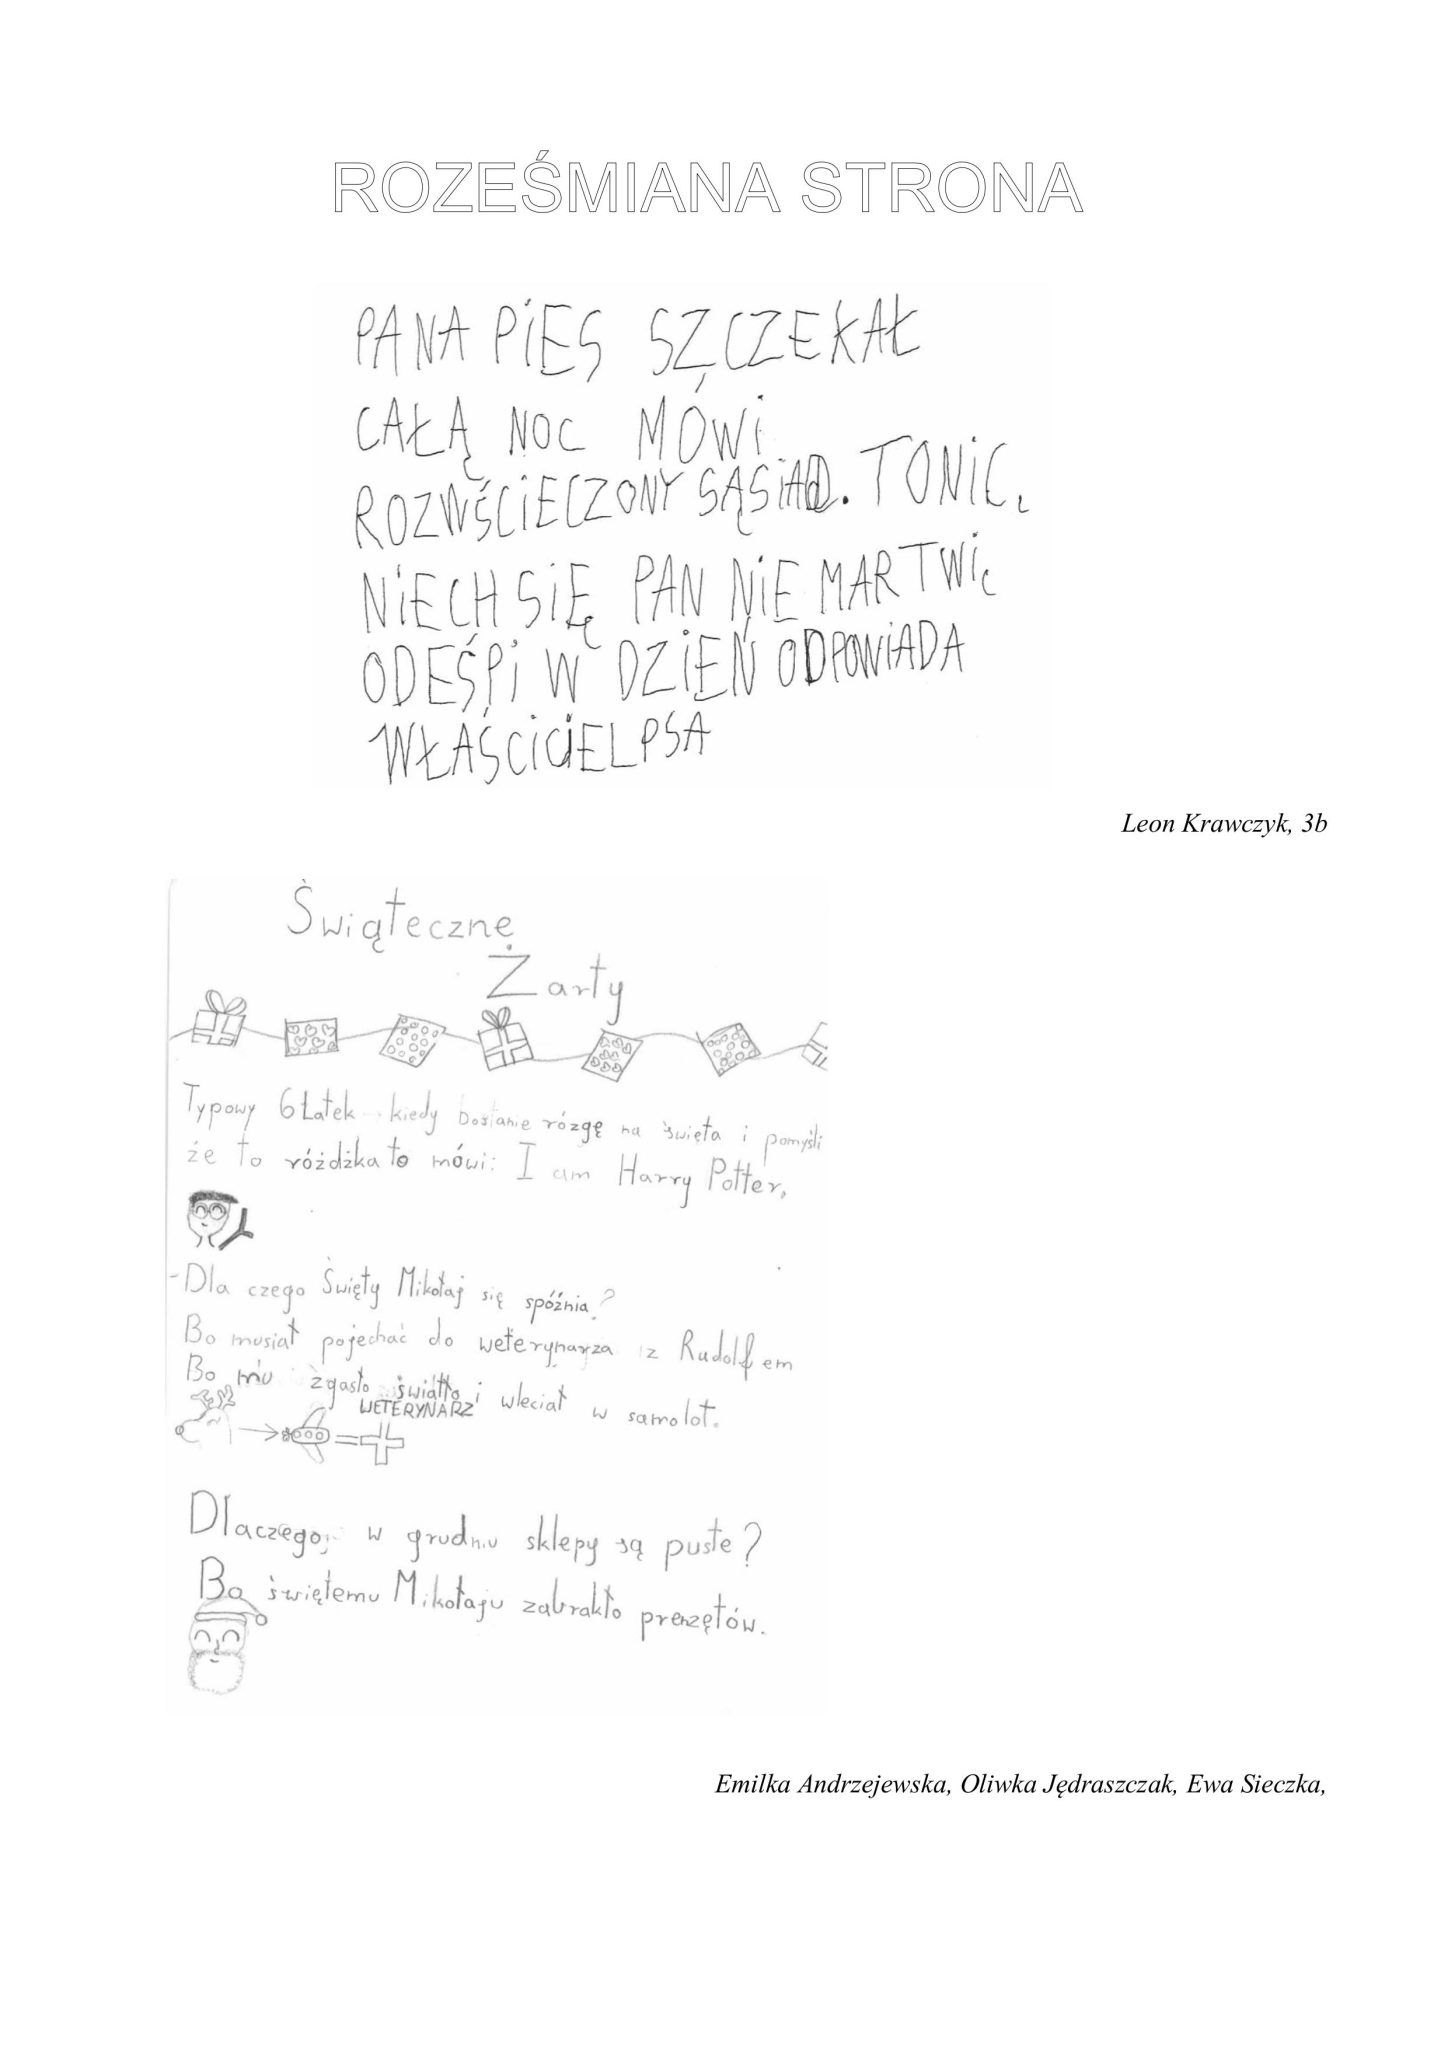 ROZEŚMIANA STRONA
PANA PIES SZCZEKAŁ
CAŁĄ NOC MÓWI
ROZWŚCIECZONY SĄSIAD. TONIC,
NIECH SIĘ PAN NIE MARTWI,
ODEŚPI W DZIEŃ ODPOWIADA
WŁAŚCICIEL PSA
Leon Krawczyk, 3b
Świąteczne
Żarty
Typowy 6 Łatek kiedy Dostanie rózgę na święta i pomyśli
że to różdżka to mówi: I am Harry Potter,
-Dla czego Święty Mikołaj się spóźnia?
Bo musiał pojechać do weterynarza z Rudolfem
Bo mu zgasło światło i wleciał w samolot.
WETERYNARZ
Dlaczego w grudniu sklepy są puste?
Bo świętemu Mikołaju zabrakło prenzętów.
Emilka Andrzejewska, Oliwka Jędraszczak, Ewa Sieczka,